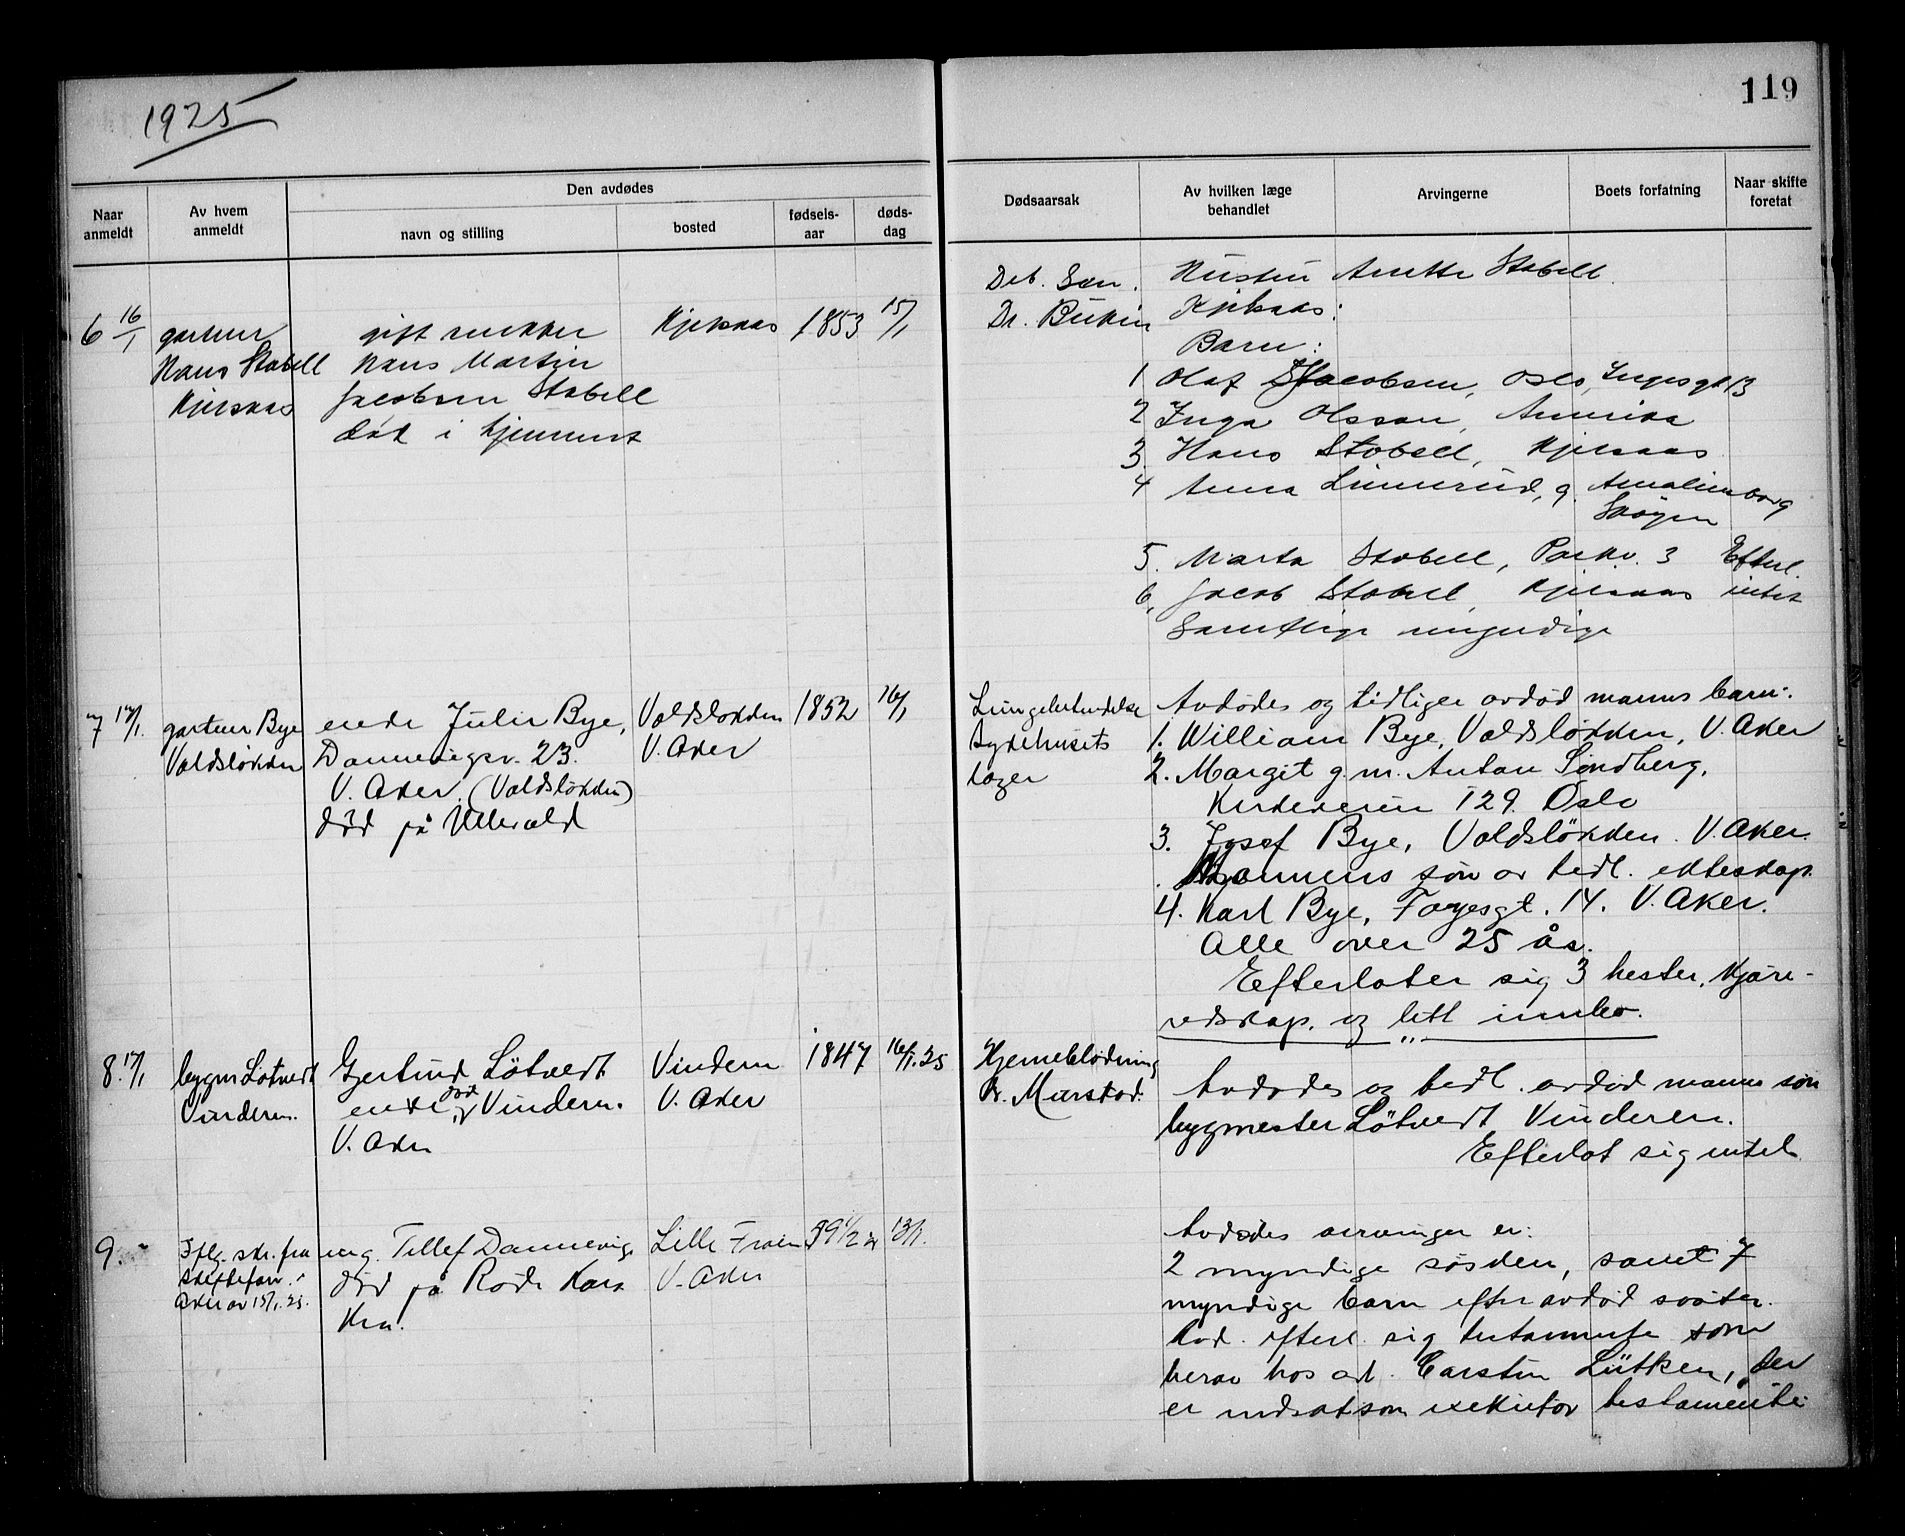 1925
119
Den avdødes
Naar anmeldt
Av hvem anmeldt
navn og stilling
bosted
fødsels-aar
døds-dag
Dødsaarsak
Av hvilken læge behandlet
Arvingerne
Boets forfatning
Naar skifte foretat
6 16/1
gartner
Hans Stabell
Kjelsaas
gift snekker
Hans Martin
Jacobsen Stabell
død i hjemmet
Kjelsaas
1853
15/1
Deb. Sen.
Dr.
Hustru Anette Stabell
Kjelsaas:
Barn:
1 Olaf Jacobsen, Oslo,
2 Inga Olsson, Amerika
3. Hans Stabell, Kjelsaas
4 Anna Linnerud, g. Amalienborg
Skøyen
5. Marta Stabell, Parkv. 3 Efterl.
6, Jacob Stabell, Kjelsaas intet
Samtlige myndige
7 17/1.
gartner Bye
Voldsløkken
enke Julie Bye,
Dannevigsv. 23.
V. Aker. (Voldsløkken)
død på Ullevold
Voldsløkken
V. Aker
1852
16/1
Lungebetendelse
Sykehusets
læger
Avdødes og tidliger avdød manns barn:
1. William Bye, Voldsløkken, V. Aker
2. Margit g. m. Anton Sindberg,
Kirkeveien 129. Oslo
3. Josef Bye, Voldsløkken. V. Aker.
Mannens søn av tidl. ekteskap.
4. Karl Bye, Fayesgt. 14. V. Aker.
Alle over 25 år.
Efterlater sig 3 hester, kjøre-
redskap. og litt innbo.
8. 17/1
bygm Løtvedt
Vinderen.
Gjertrud Løtvedt
enke død på Vinderen.
V. Aker
Vinderen
V. Aker
1847
16/1.25
Hjerneblødning
Dr. Marstad.
Avdødes og tidl. avdød manns søn
bygmester Løtvedt Vinderen.
Efterlot sig intet
9.
Iflg. skr. fra
skiftefor. i
Aker av 15/1.25.
ug. Tellef Dannevig
død på Røde Kors
Kra.
Lille Frøen
V. Aker
59 1/2 år
13/1.
Avdødes arvinger er:
2 myndige søsken, samt 7
myndige barn efter avdød søster.
Avd. efterl. sig testamente som
beror hos adv. Carsten Lütken, der
er indsat som exekutor testamenti.